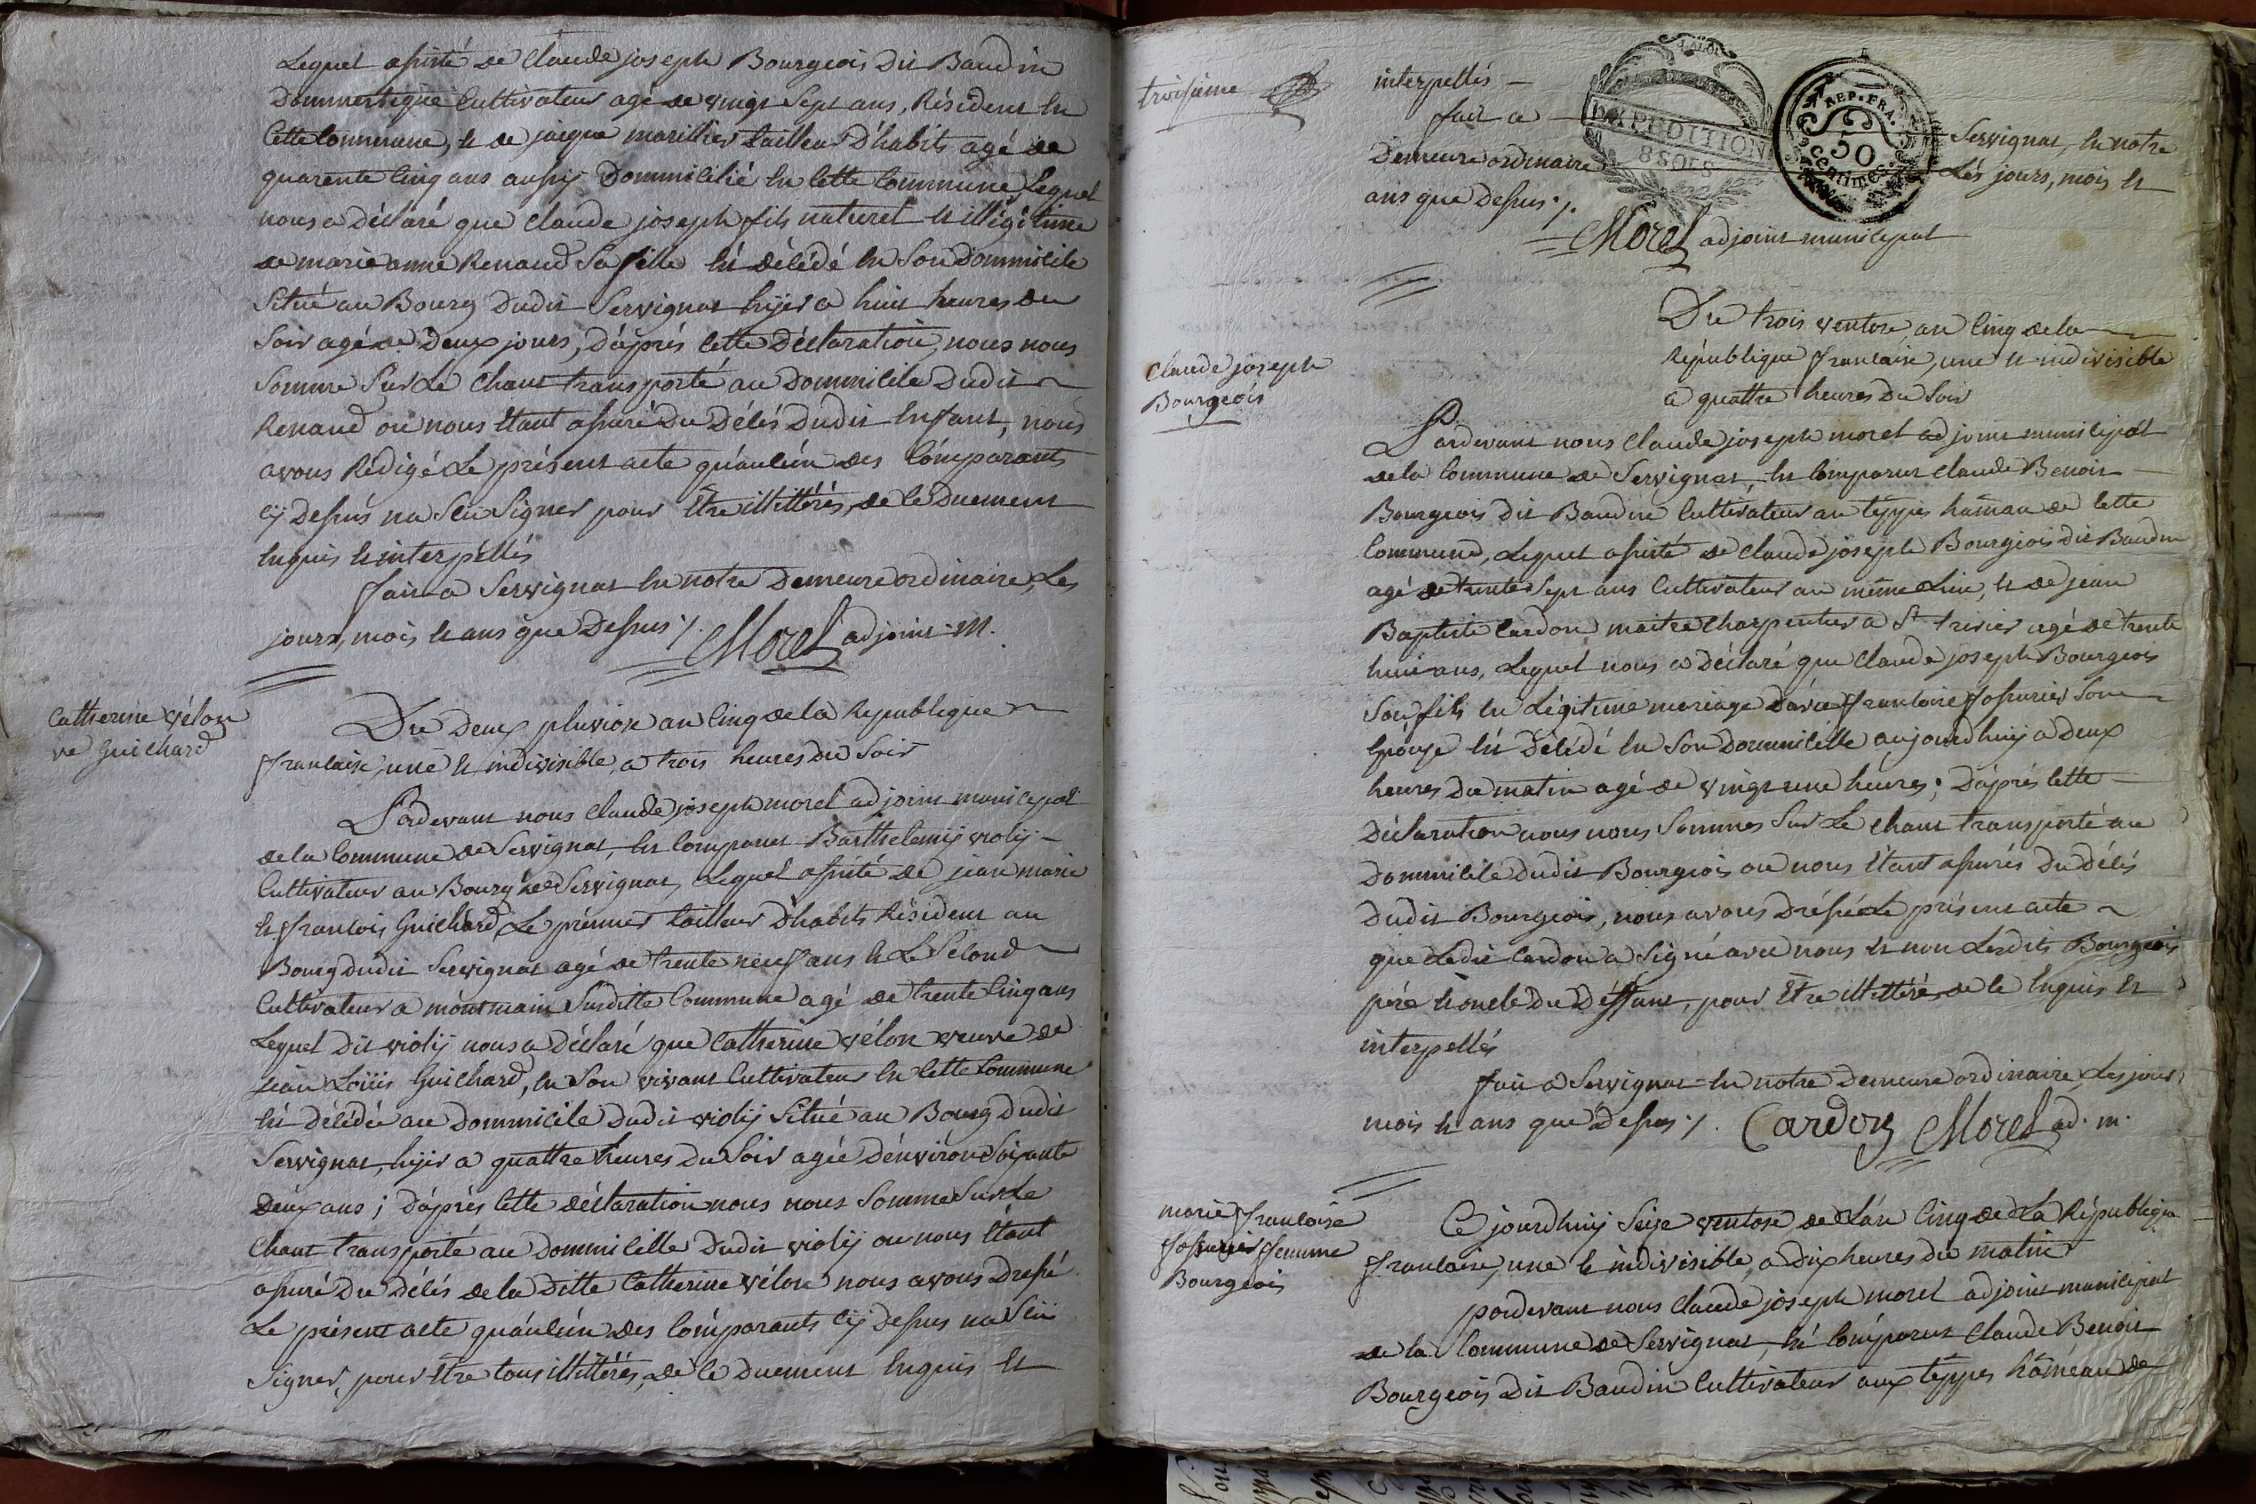 Lequel assisté de Claude joseph Bourgeois Dit Baudin
Dommestique Cultivateur agé de vingt Sept ans, Résident en
Cette Commune, et de jacque marillier tailleur D'habits agé de
quarente Cinq ans aussij Dommicilié en Cette Commune Lequel
nous a Déclaré que Claude joseph fils naturel et illégitime
de marie anne Renaud Sa fille est décédé en Son Dommicile
Situé au Bourg Dudit Servignat hijer a huit heures du
Soir agé de Deux jours, D'aprés Cette Déclaration, nous nous
Somme Sur Le Chant transporté au Dommicile Dudit
Renaud ou nous Etant assuré Du Décés Dudit Enfant, nous
avons Rédigé Le présent acte qu'auc'un des Comparants
Cij Dessus na Sçu Signer pour Etre illittérés, de Ce Duement
Enquis et interpéllés
fait a Servignat En notre Demeure ordinaire, Les
jours, mois et ans que Dessus ./. Morel adjoint m.
Catherine vélon
ve Guichard
Du Deux pluviose an Cinq de la Republique
francaise, une et indivisible, a trois heures Du Soir
Pardevant nous Claude joseph morel adjoint municipal
de la Commune de Servignat, Est Comparut Barthelemij violij
Cultivateur au Bourg de Servignat, Lequel assisté de jean marie
et francois Guichard, Le prémier tailleur D'habits Résident au
Bourg dudit Servignat agé de trente neuf ans et Le Second
Cultivateur a montmain Susditte Commune agé de trente Cinq ans
Lequel Dit violij nous a Déclaré que Catherine vélon veuve de
jean Loüis Guichard, en Son vivant Cultivateur En Cette Commune
Est Décédée au Dommicile dudit violij Situé au Bourg dudit
Servignat, hijer a quattre heures Du Soir agée D'environ Soixante
Deux ans ; D'aprés Cette déclaration nous nous Somme Sur Le
Chant transporté au Dommicille Dudit violij ou nous Etant
assuré Du Décés de la Ditte Catherine vélon nous avons Dressé
Le présent acte qu'auc'un des Comparants Cij Dessus na Sçu
Signer, pour Etre tous illittérés, de Ce Duement Enquis Et
troisieme
interpellés
fait a Servignat, En notre
Demeure ordinaire Lés jours, mois et
ans que Dessus ./.
Morel adjoint municipal
EXPEDITION
8 SOLS
REP. FRA.
50
centimes
Claude joseph
Bourgeois
Du trois ventose, an Cinq de la
République francaise, une et indivisible
a quattre heures Du Soir
Pardevant nous Claude joseph morel adjoint municipal
de la Commune de Servignat, Est Comparut Claude Benoit
Bourgeois dit Baudin Cultivateur au téppes hamau de Cette
Commune, Lequel assisté de Claude joseph Bourgeois dit Baudin
agé de trente Sept ans Cultivateur au même Lieu, et de jean
Baptiste Cardon maitre Charpentier a St. trivier agé de trente
huit ans, Lequel nous a Déclaré que Claude joseph Bourgeois
Son fils en Légitime mariage D'avec francoise fossurier Son
Epouse Est Décédé En Son Dommicille aujourdhuij a Deux
heures Du matin agé de vingt une heures ; D'aprés Cette
Déclaration nous nous Sommes Sur Le Chant transporté au
Dommicile dudit Bourgeois ou nous Etant assurés Du décés
Dudit Bourgeois, nous avons Dréssé Le présent acte
que Ledit Cardon a Signé avec nous et non Lesdits Bourgeois
pére et oncle Du Déffunt, pour Etre illittéré, de Ce Enquis et
interpellés
fait a Servignat En notre Demeure ordinaire, Les jours
mois et ans que Dessus ./. Cardon Morel ad. m.
marie francoise
fossurier femme
Bourgeois
Ce jourdhuij Seize ventose de L'an Cinq de La République
francaise, une et indivisible, a Dix heures du matin
pardevant nous Claude joseph morel adjoint municipal
de la Commune de Servignat, Est Comparut Claude Benoit
Bourgeois Dit Baudin Cultivateur aux téppes hâméau de